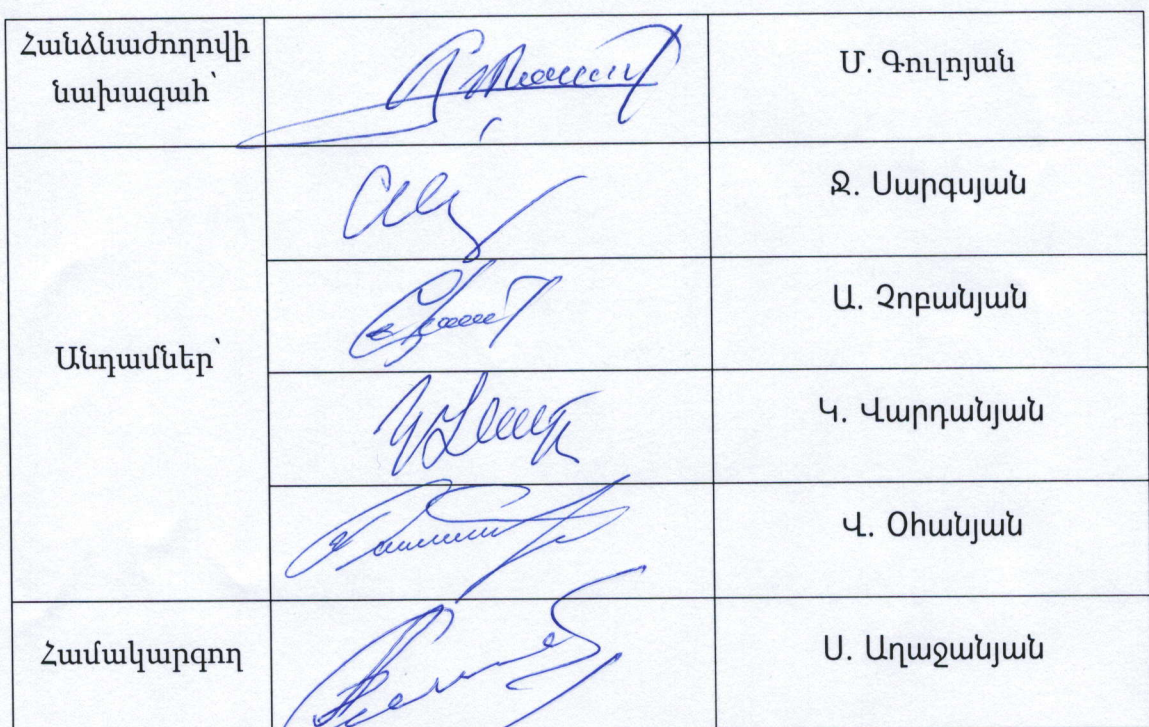 Հանձնաժողովի
նախագահ՝
Մ. Գուլոյան
Ջ. Սարգսյան
Ա. Չոբանյան
Անդամներ՝
Կ. Վարդանյան
Վ. Օհանյան
Համակարգող
Ս. Աղաջանյան